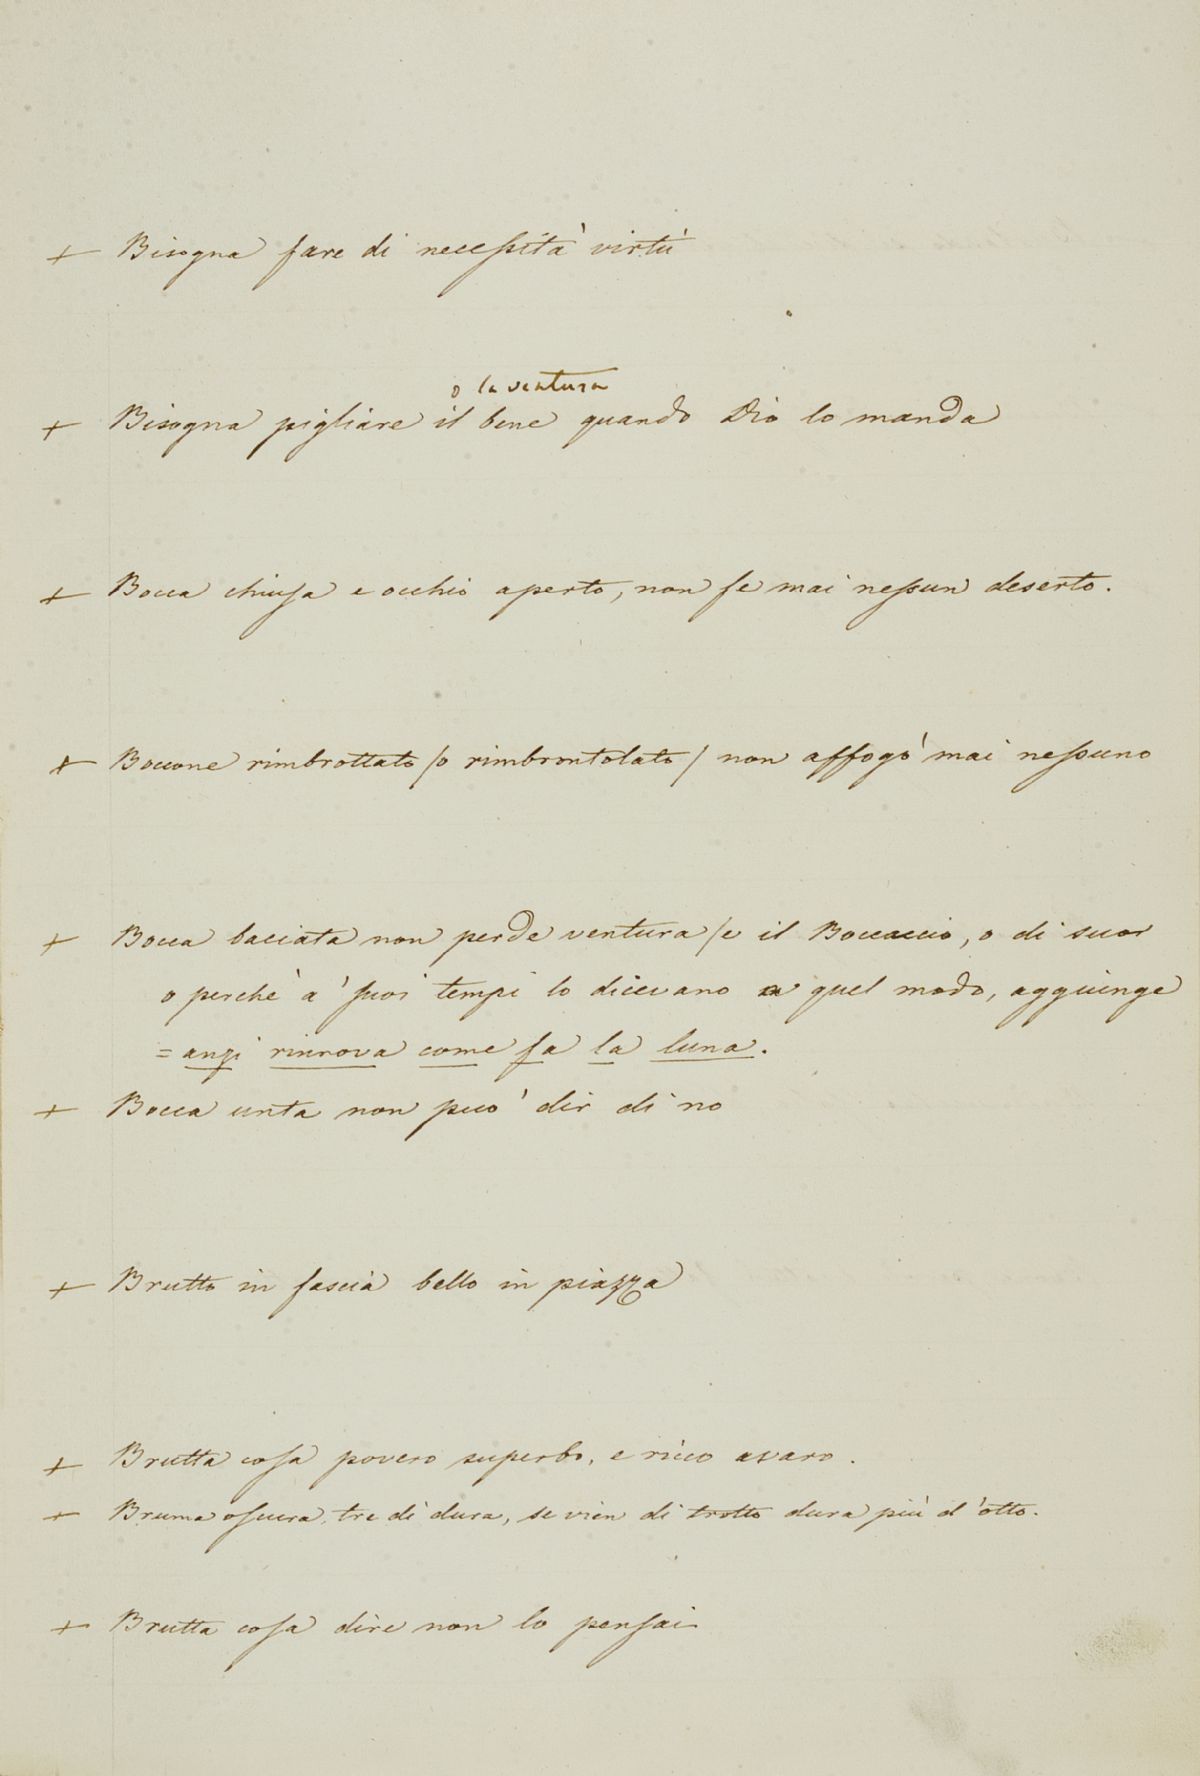 + Bisogna fare di necessità virtù
o la ventura
+ Bisogna pigliare il bene quando Dio lo manda
+ Bocca chiusa e occhio aperto, non fe mai nessun deserto.
+ Boccone rimbrottato /o rimbrontolato/ non affogò mai nessuno
+ Bocca baciata non perde ventura /e il Boccaccio, o di suor
o perchè a' suoi tempi lo dicevano a quel modo, aggiunge
= anzi rinnova come fa la luna.
+ Bocca unta non può dir di no
+ Brutto in fascia bello in piazza
+ Brutta cosa povero superbo, e ricco avaro.
+ Bruma oscura tre dì dura, se vien di trotto dura più d'otto.
+ Brutta cosa dire non lo pensai